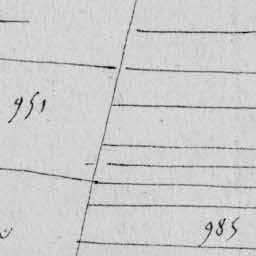 951
985